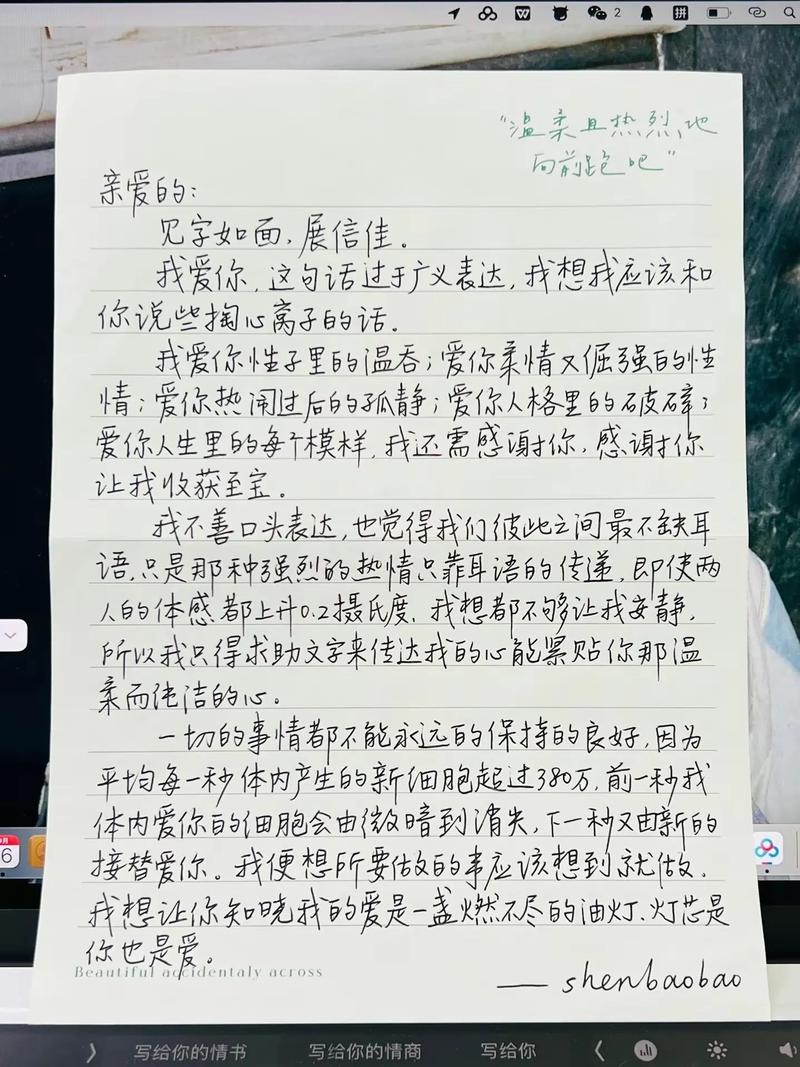 2
拼
"温柔且热烈地
向前跑吧"
亲爱的:
见字如面,展信佳。
我爱你,这句话过于广义表达,我想我应该和
你说些掏心窝子的话。
我爱你性子里的温吞;爱你柔情又倔强的性
情;爱你热闹过后的孤静;爱你人格里的破碎;
爱你人生里的每个模样,我还需感谢你,感谢你
让我收获至宝。
我不善口头表达,也觉得我们彼此之间最不缺耳
语,只是那种强烈的热情只靠耳语的传递,即使两
人的体感都上升0.2摄氏度,我想都不够让我安静,
所以我只得求助文字来传达我的心能紧贴你那温
柔而纯洁的心。
一切的事情都不能永远的保持的良好,因为
平均每一秒体内产生的新细胞超过380万,前一秒我
体内爱你的细胞会由微暗到消失,下一秒又由新的
接替爱你。我便想所要做的事应该想到就做,
我想让你知晓我的爱是一盏燃不尽的油灯、灯芯是
你也是爱。
Beautiful accidentaly across
—— shenbaobao
写给你的情书
写给你的情商
写给你